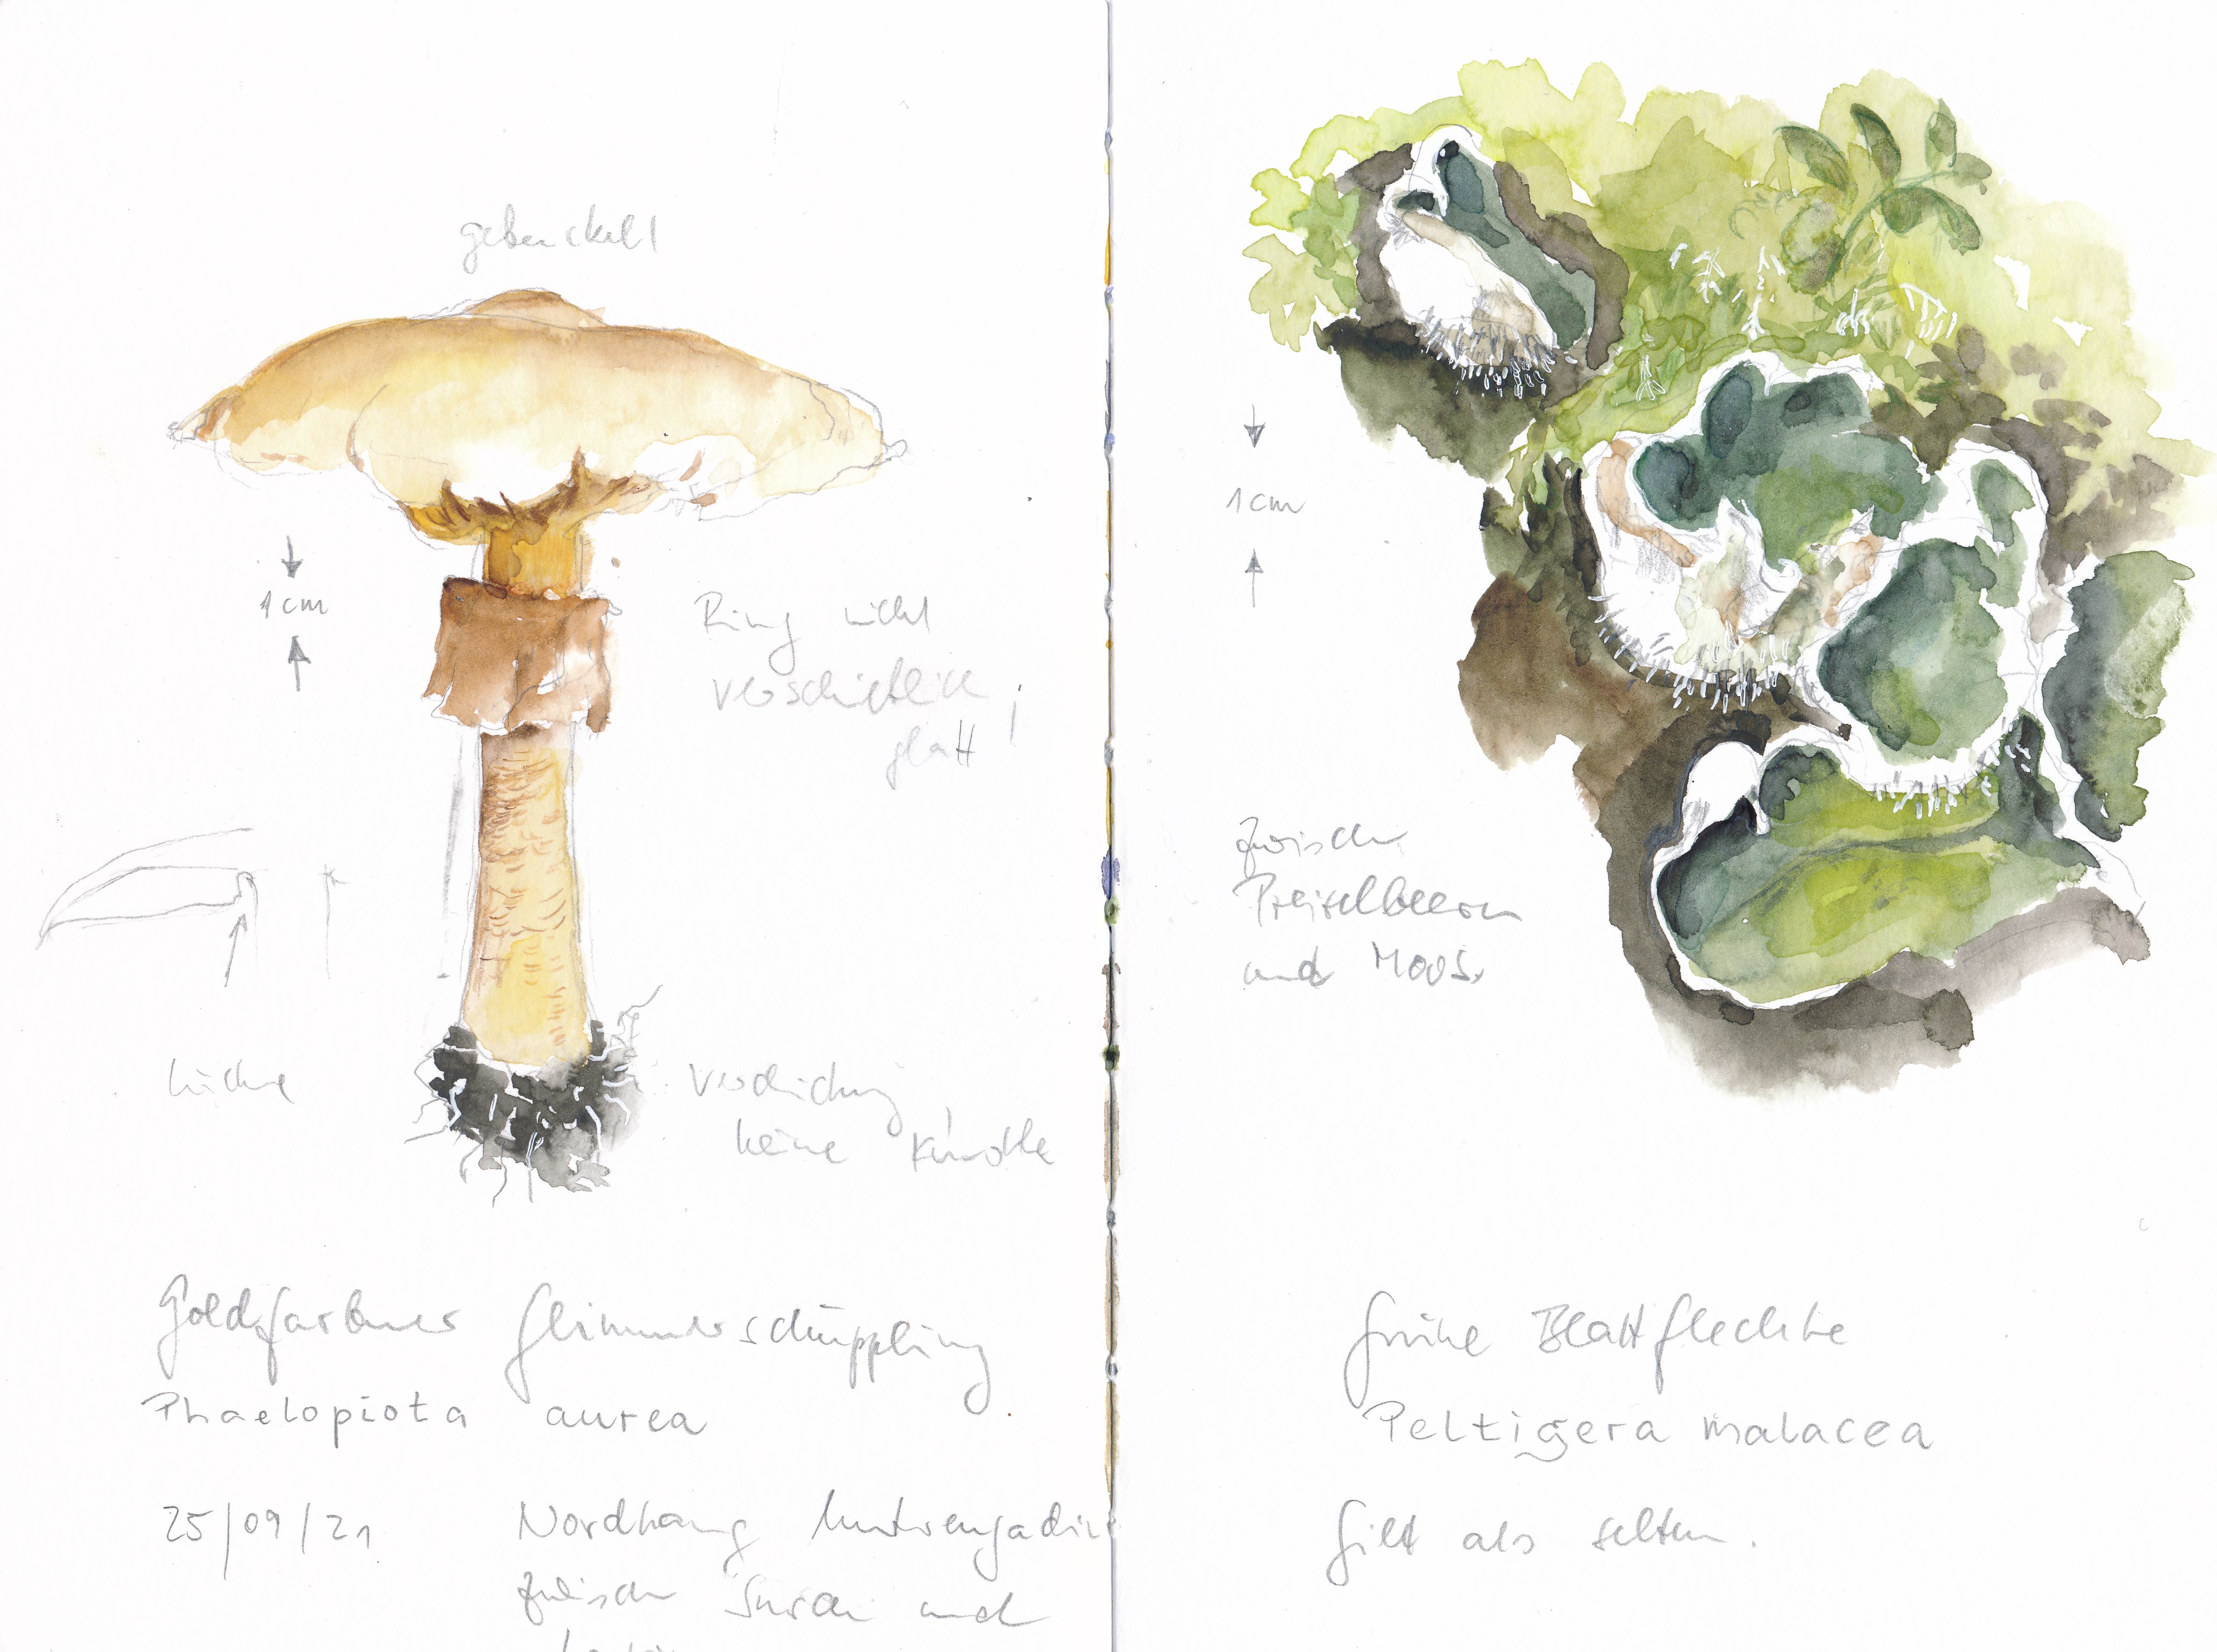 gebuckelt
1 cm
Ring nicht
verschieblich
glatt !
Lücke
Verdickung
keine Knolle
Goldfarbener Glimmerschüppling
Phaelopiota aurea
25/09/21 Nordhang Unterengadin
zwischen und
1 cm
zwischen
Preiselbeeren
und Moos.
Grüne Blattflechte
Peltigera malacea
Gilt als selten.